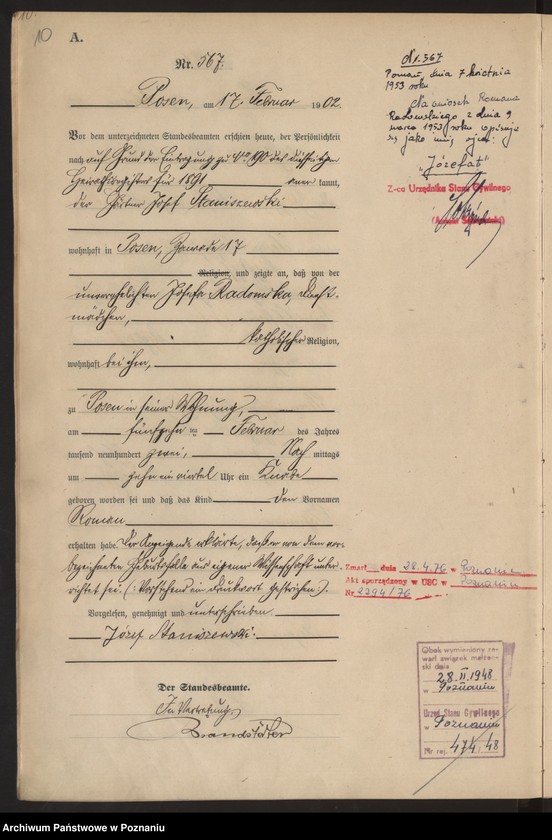 10.
10
A.
Nr. 367.
Posen, am 17. Februar 1902.
Vor dem unterzeichneten Standesbeamten erschien heute, der Persönlichkeit
nach auf Grund der Eintragung zu No 90 des diesseitigen
Heirathsregisters für 1891 kannt,
der Gärtner Józef Staniszewski
wohnhaft in Posen, Zawade 17
Religion, und zeigte an, daß von der
unverehelichten Josefa Radomska, Dienst-
mädchen,
katholischer Religion,
wohnhaft bei ihm,
zu Posen in seiner Wohnung,
am fünfzehnten Februar des Jahres
tausend neunhundert zwei, Nach mittags
um zehn ein viertel Uhr ein Knabe
geboren worden sei und daß das Kind den Vornamen
Roman
erhalten habe. Der Anzeigende erklärte, daß er von dem vor-
bezeichneten Geburtsfalle aus eigener Wissenschaft unter-
richtet sei. (: Vorstehend ein Druckwort gestrichen :).
Vorgelesen, genehmigt und unterschrieben.
Józef Staniszewski.
Der Standesbeamte.
In Vertretung.
Brandstäter
Nr. 367
Poznań, dnia 7 kwietnia
1953 roku
Na wniosek Romana
Radomskiego z dnia 9
marca 1953 roku wpisuje
się jako imię ojca:
"Józefat"
Z-ca Urzędnika Stanu Cywilnego
Zmarł dnia 28.4.76 w Poznaniu
Akt sporządzony w USC w Poznaniu
Nr 2294/76
Obok wymieniony za-
warł związek małżeń-
ski dnia
28.II.1948
w Poznaniu
Urząd Stanu Cywilnego
w Poznaniu
Nr rej. 474/48
Archiwum Państwowe w Poznaniu